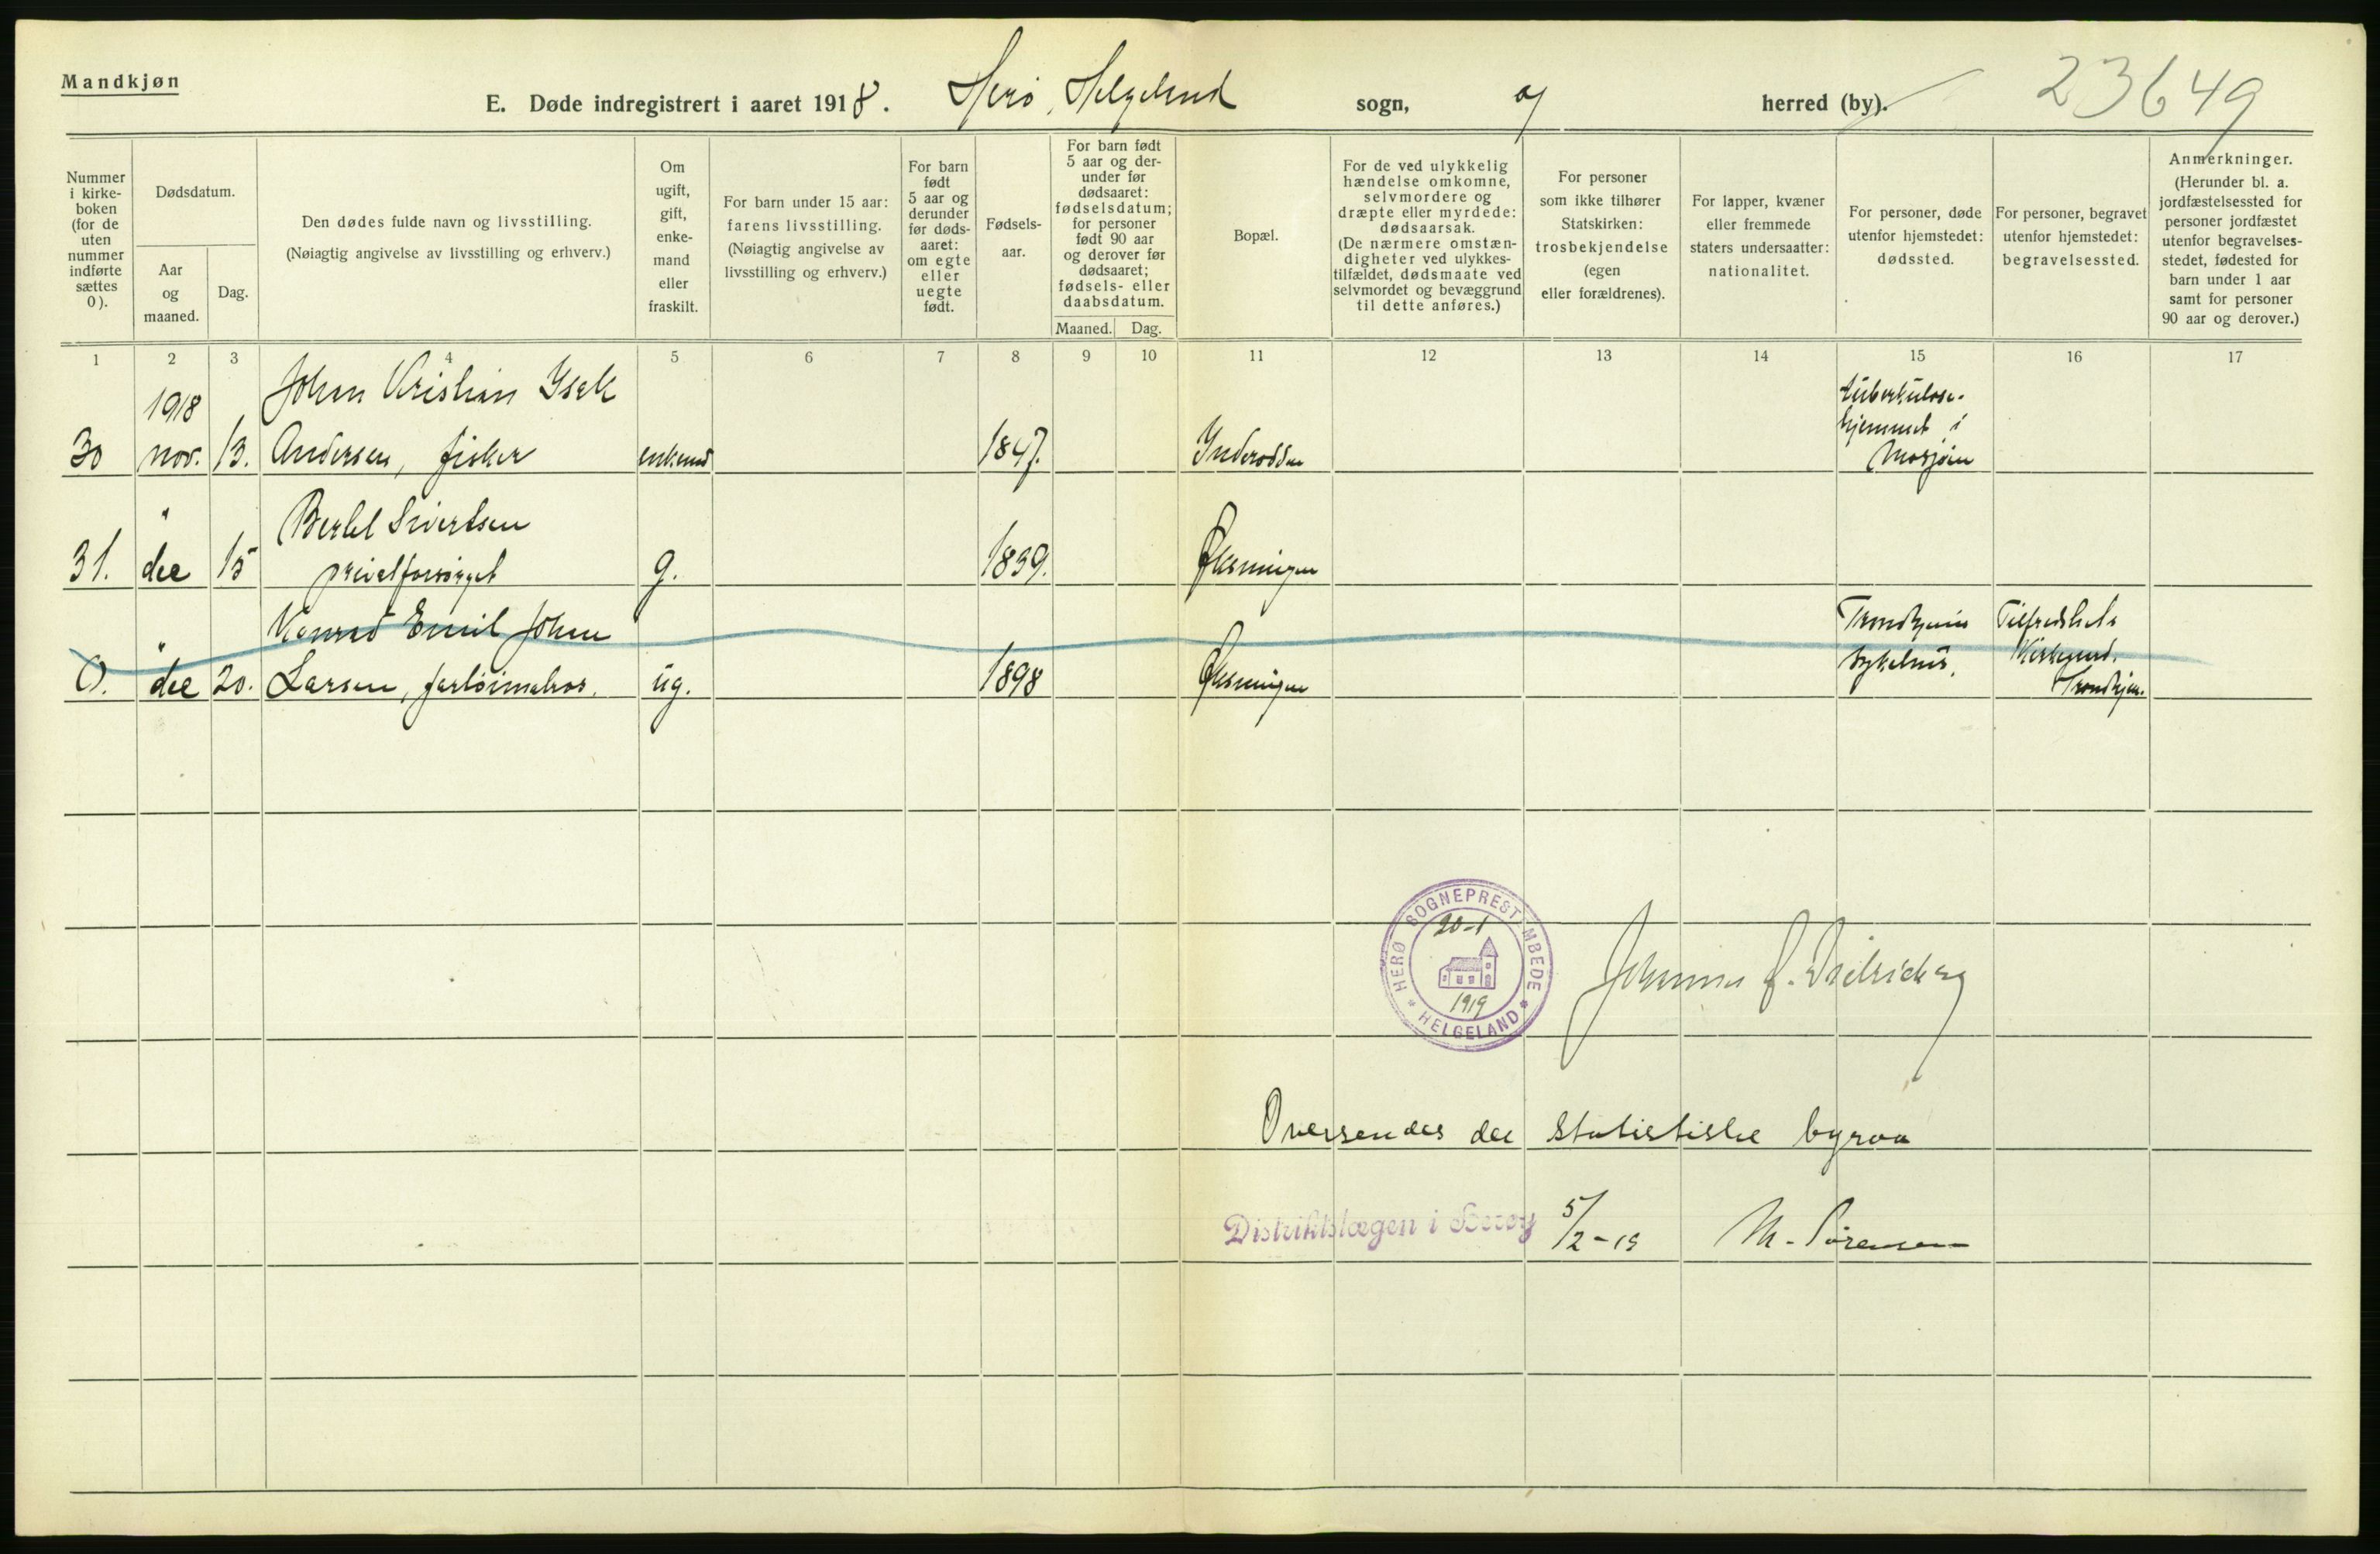 Mandkjøn
E. Døde indregistrert i aaret 1918. Herø, Helgeland sogn, og herred (by). 23649
Nummer i kirke-boken (for de uten nummer indførte sættes 0).
Dødsdatum.
Aar og maaned.
Dag.
Den dødes fulde navn og livsstilling.
(Nøiagtig angivelse av livsstilling og erhverv.)
Om ugift, gift, enke-mand eller fraskilt.
For barn under 15 aar: farens livsstilling.
(Nøiagtig angivelse av livsstilling og erhverv.)
For barn født 5 aar og derunder før døds-aaret: om egte eller uegte født.
Fødsels-aar.
For barn født 5 aar og der-under før dødsaaret: fødselsdatum; for personer født 90 aar og derover før dødsaaret; fødsels- eller daabsdatum.
Maaned. Dag.
Bopæl.
For de ved ulykkelig hændelse omkomne, selvmordere og dræpte eller myrdede: dødsaarsak.
(De nærmere omstæn-digheter ved ulykkes-tilfældet, dødsmaate ved selvmordet og bevæggrund til dette anføres.)
For personer som ikke tilhører Statskirken: trosbekjendelse (egen eller forældrenes).
For lapper, kvæner eller fremmede staters undersaatter: nationalitet.
For personer, døde utenfor hjemstedet: dødssted.
For personer, begravet utenfor hjemstedet: begravelsessted.
Anmerkninger.
(Herunder bl. a. jordfæstelsessted for personer jordfæstet utenfor begravelses-stedet, fødested for barn under 1 aar samt for personer 90 aar og derover.)
1 2 3 4 5 6 7 8 9 10 11 12 13 14 15 16 17
1918 Johan Kristian Isak tuberkulose-
hjemmet i
30 nov. 13. Andersen, fisker enkemd 1847. Inderodden Mosjøen
" Bertel Sivertsen
31. dec 15 privatforsørget g. 1839. Øksningen
" Konrad Emil Johan Trondhjems Tilfredshets
sykehus. Kirkegaard.
0. dec 20. Larsen, ug. 1898 Øksningen Trondhjem.
HERØ SOGNEPRESTEMBEDE * HELGELAND *
20-1
1919
Oversendes det statistiske byraa
Distriktslægen i Herøy 5/2-19 M. Sørensen